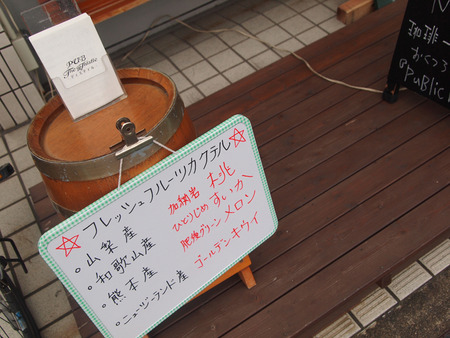 PUB
☆フレッシュフルーツカクテル☆
・山梨産 加納岩 桃
・和歌山産 ひとりじめ すいか
・熊本産 肥後グリーン メロン
・ニュージーランド産 ゴールデンキウイ
珈琲
@PuBlic